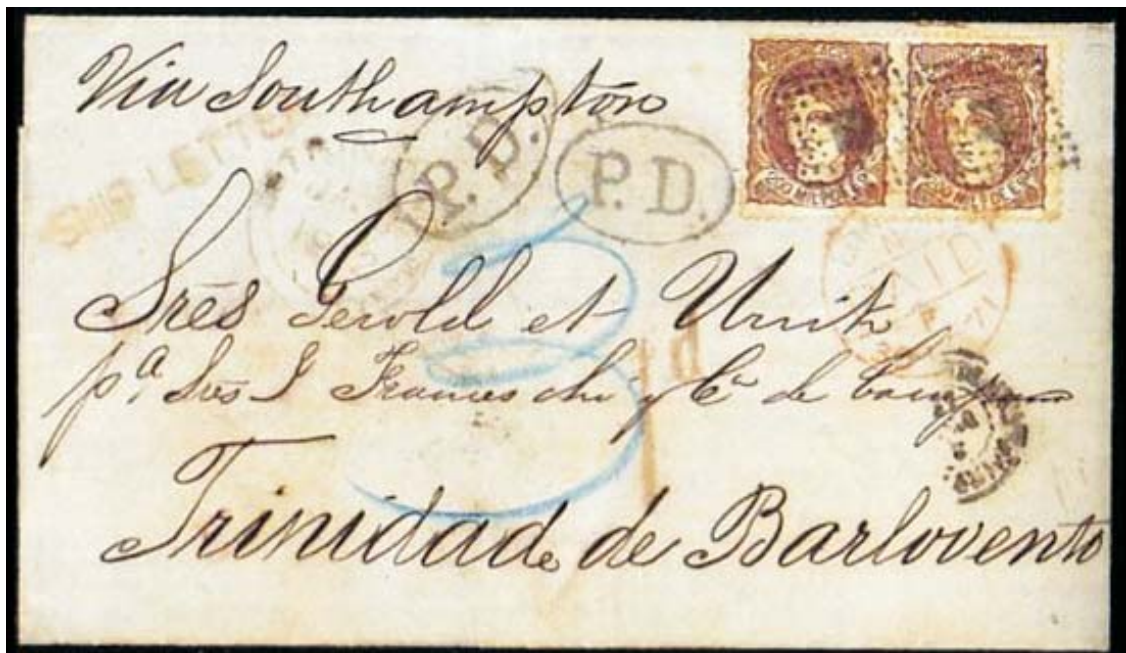 Via Southampton
SHIP LETTER
P.D.
P.D.
200 MILs DE Eo
200 MILs DE Eo
PAID
71
Srēs Gerold et Urich
pª Srēs J Franceschi y Cª de Carupano
1d
3
Trinidad de Barlovento